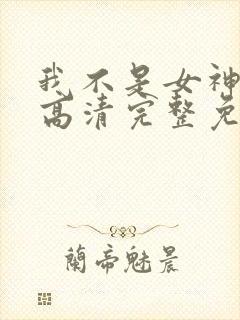 我不是女神
高清完整免
蘭帝魅晨